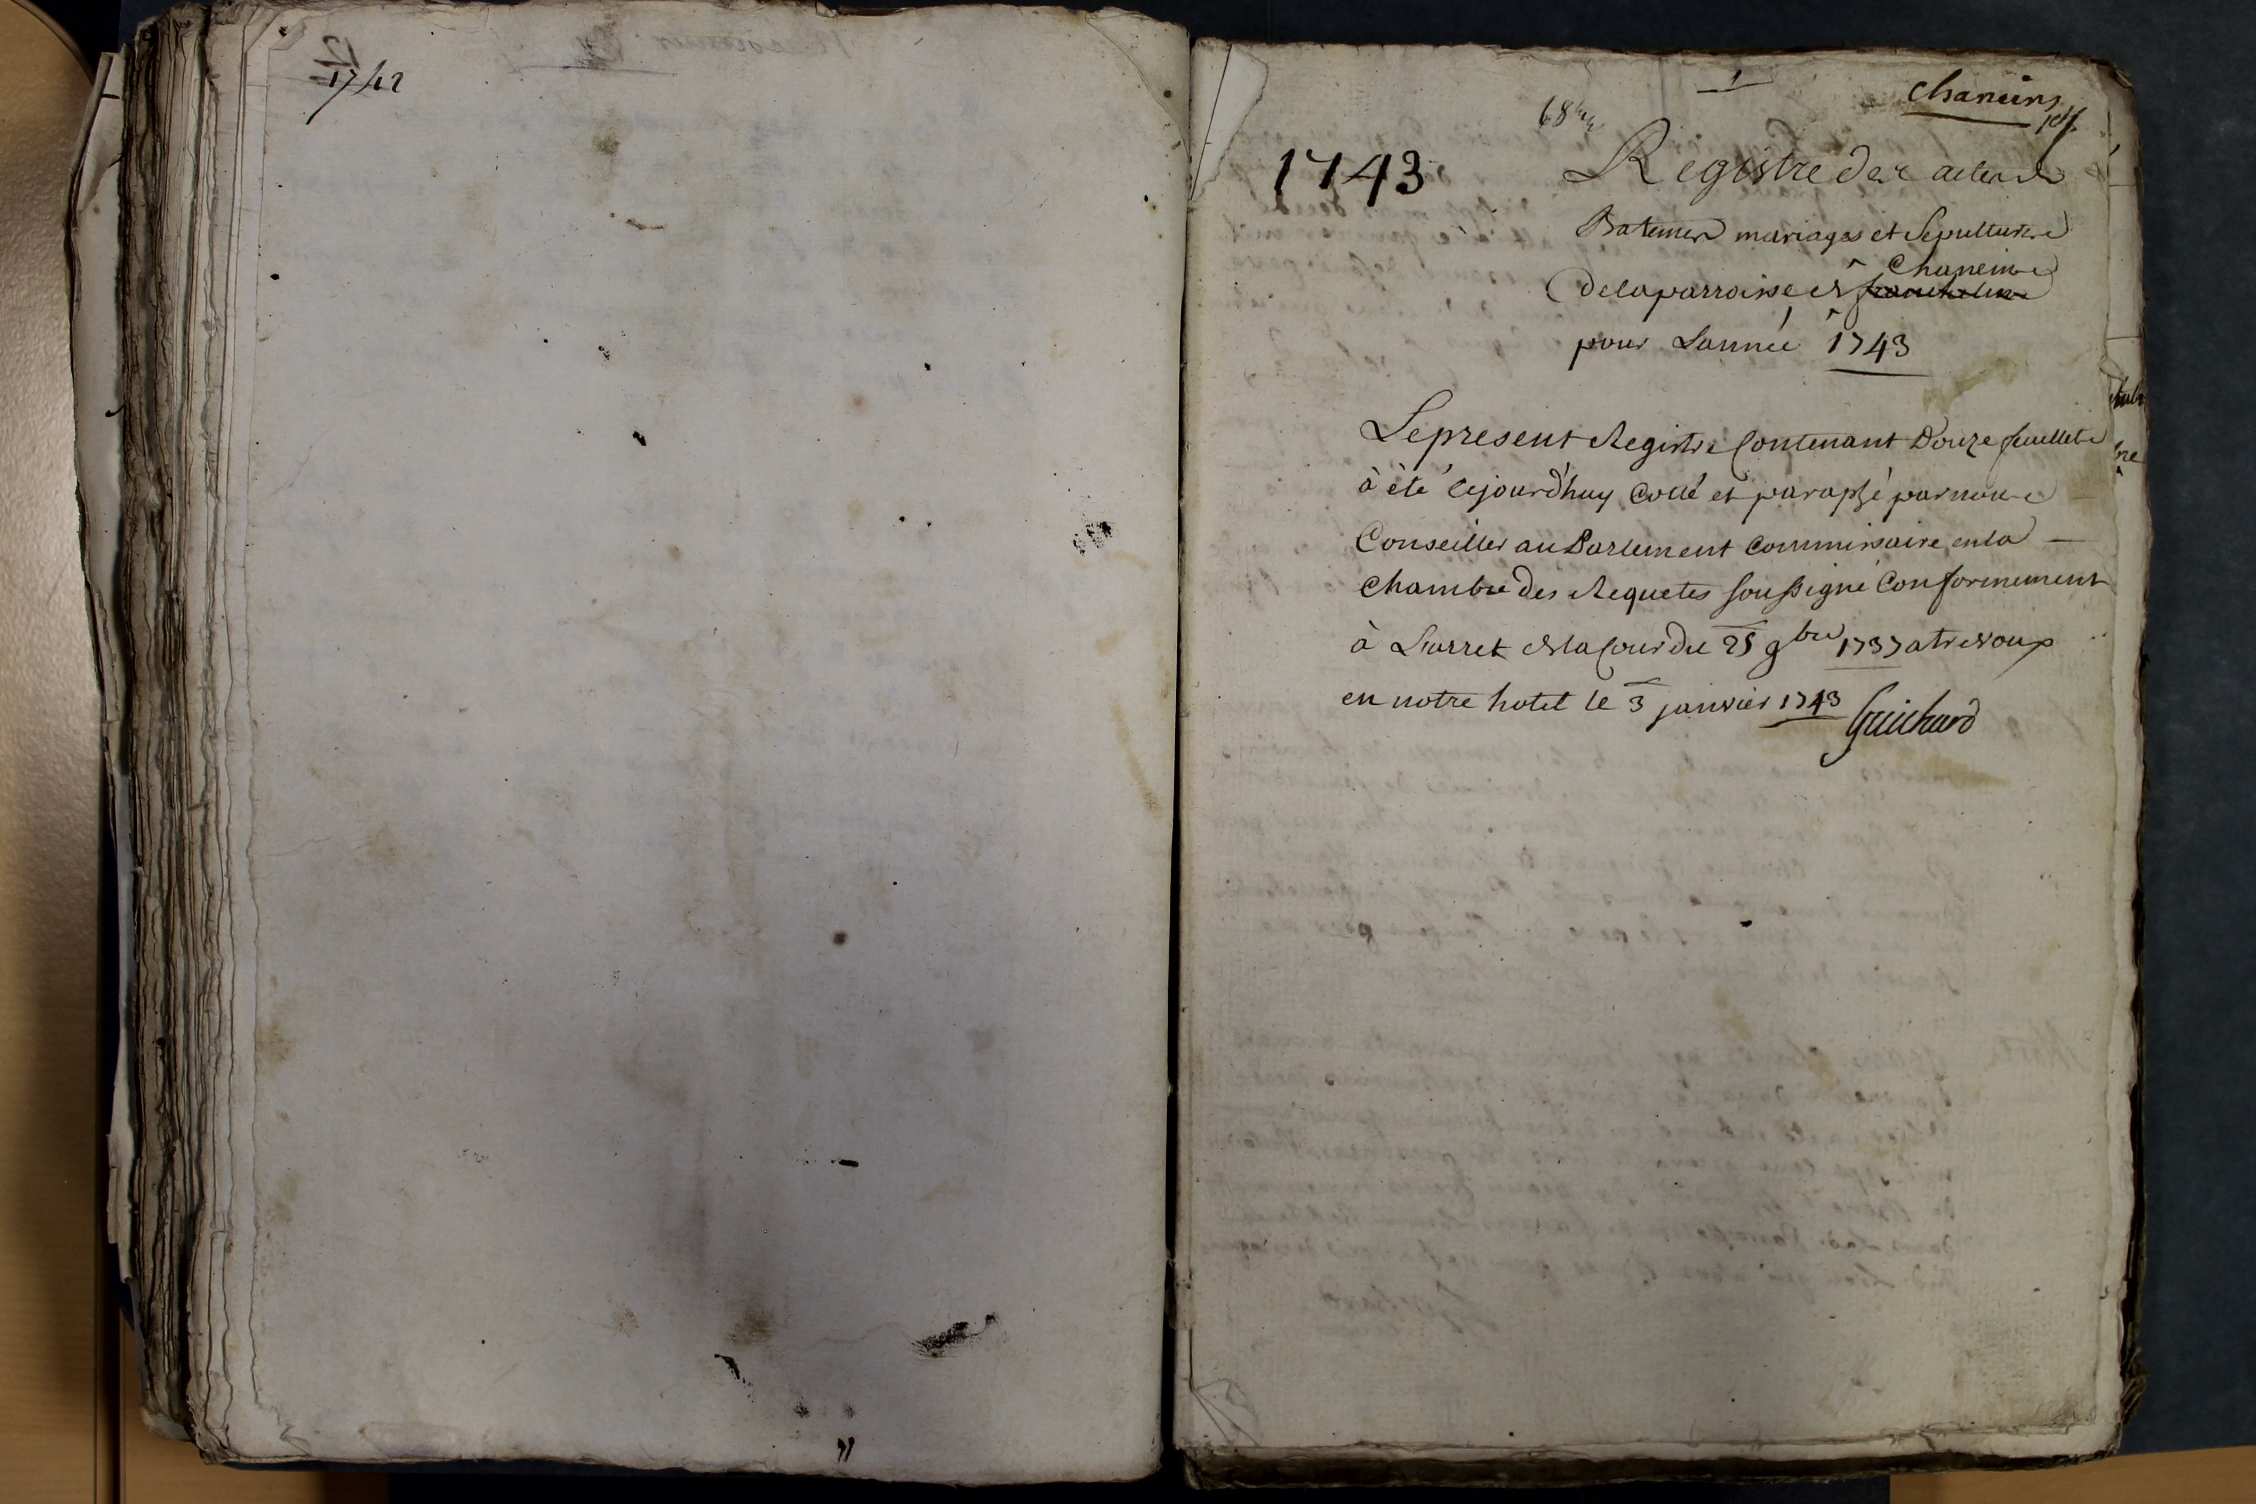 1742
1
chaneins
1743
Registre des actes de
Batemes mariages et Sepultures
chaneins
de la parroisse de francheleins
pour Lannée 1743
Le present Registre Contenant Douze feuillets
à èté cejourd'huy Cotté et paraphé par nous
Conseiller au Parlement Commissaire en la
Chambre des Requetes soussigné Conformement
à L'arret de la Cour du 25 9bre 1737 a trevoux
en notre hotel le 3 janvier 1743
Guichard